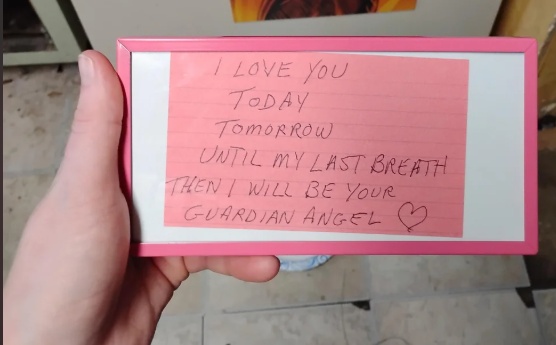 I LOVE YOU
TODAY
TOMORROW
UNTIL MY LAST BREATH
THEN I WILL BE YOUR
GUARDIAN ANGEL ♡